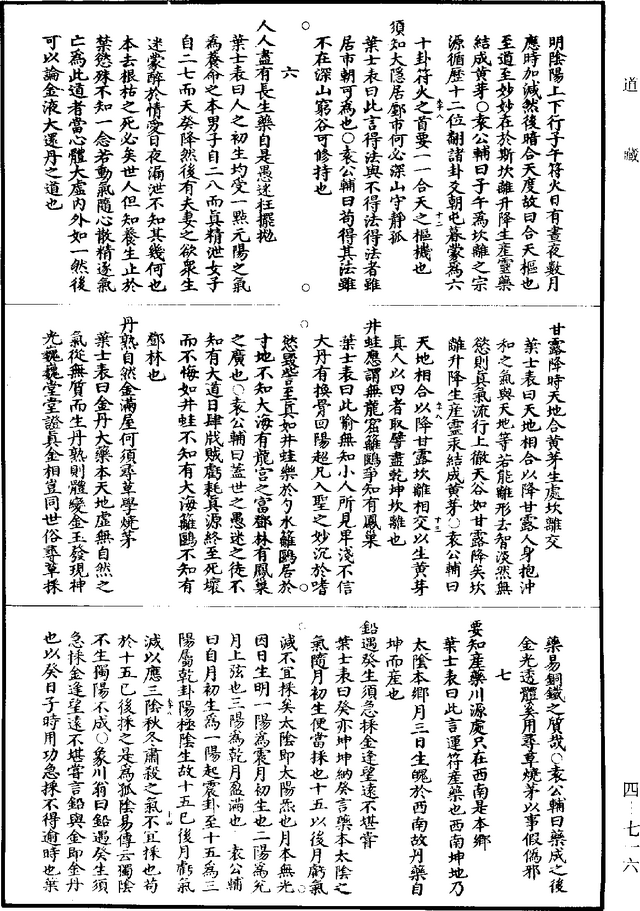 道藏
明陰陽上下行子午符火日有晝夜數月
應時加減然後暗合天度故曰合天樞也
至道至妙妙在於斯坎離升降生產靈藥
結成黃芽○袁公輔曰子午為坎離之宗
源循歷十二位翻諸卦爻朝屯暮蒙為六
十卦符火之首要一一合天之樞機也
須知大隱居鄽市何必深山守靜孤
葉士表曰此言得法與不得法得法者雖
居市朝可為也○袁公輔曰苟得其法雖
不在深山窮谷可修持也
六
人人盡有長生藥自是愚迷枉擺拋
葉士表曰人之初生均受一點元陽之氣
為養命之本男子自二八而真精泄女子
自二七而天癸降然後有夫妻之欲眾生
迷蒙醉於情愛日夜漏泄不知其幾何也
本去根枯之死必矣世人但知養生止於
禁慾殊不知一念若動氣隨心散精逐氣
亡為此道者當心體太虛內外如一然後
可以論金液大還丹之道也
甘露降時天地合黃芽生處坎離交
葉士表曰天地相合以降甘露人身抱沖
和之氣與天地等若能離形去智淡然無
慾則真氣流行上徹天谷如甘露降矣坎
離升降生産靈汞結成黃芽○袁公輔曰
天地相合以降甘露坎離相交以生黃芽
真人以四者取譬盡乾坤坎離也
井蛙應謂無龍窟籬鷃爭知有鳳巢
葉士表曰此喻無知小人所見卑淺不信
大丹有換骨回陽超凡入聖之妙沉於嗜
慾毀訾至真如井蛙樂於勺水籬鷃居於
寸地不知大海有龍宮之富鄧林有鳳巢
之廣也○袁公輔曰蓋世之愚迷之徒不
知有大道日肆戕賊虧耗真源終至死壞
而不悔如井蛙不知有大海籬鷃不知有
鄧林也
丹熟自然金滿屋何須尋草學燒茅
葉士表曰金丹大藥本天地虛無自然之
氣從無質而生丹熟則體變金玉發現神
光巍巍堂堂證真金相豈同世俗尋草採
藥易銅鐵之質哉○袁公輔曰藥成之後
金光透體奚用尋草燒茅以事假偽邪
七
要知産藥川源處只在西南是本鄉
葉士表曰此言運符産藥也西南坤地乃
太陰本鄉月三日生魄於西南故丹藥自
坤而産也
鉛遇癸生須急採金逢望遠不堪嘗
葉士表曰癸亦坤坤納癸言藥本太陰之
氣隨月初生便當採也十五以後月虧氣
減不宜採矣太陰即太陽炁也月本無光
因日生明一陽為震月初生也二陽為兌
月上弦也三陽為乾月盈滿也 袁公輔
曰自月初生為一陽起震卦至十五為三
陽屬乾卦陽極陰生故十五已後月虧氣
減以應三陰秋冬肅殺之氣不宜採也苟
於十五已後採之是為孤陰易傳云獨陰
不生獨陽不成○象川翁曰鉛遇癸生須
急採金逢望遠不堪嘗言鉛與金即金丹
也以癸日子時用功急採不得逾時也葉
四—七一六